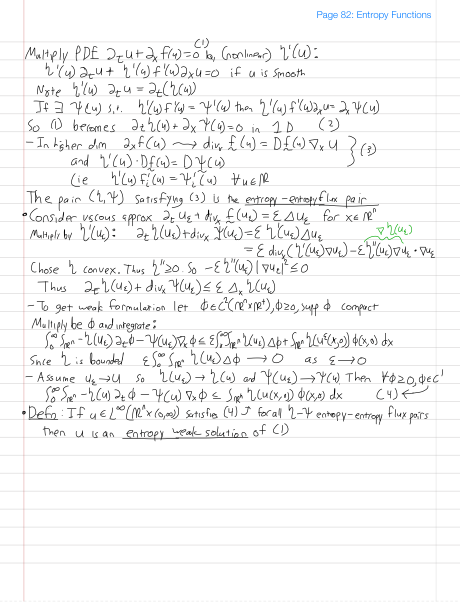 Page 82: Entropy Functions
Multiply PDE ∂_t u + ∂_x f(u) = 0 (1) by (nonlinear) η'(u):
η'(u) ∂_t u + η'(u) f'(u) ∂_x u = 0 if u is smooth
Note η'(u) ∂_t u = ∂_t(η(u))
If ∃ Ψ(u) s.t. η'(u) f'(u) = Ψ'(u) then η'(u) f'(u) ∂_x u = ∂_x Ψ(u)
So (1) becomes ∂_t η(u) + ∂_x Ψ(u) = 0 in 1D (2)
- In higher dim ∂_x f(u) ⇝ div_x f(u) = Df(u) ∇_x u
and η'(u)·Df(u) = DΨ(u) } (3)
(ie η'(u) f_i'(u) = Ψ_i'(u) ∀u∈ℝ
The pair (η,Ψ) satisfying (3) is the entropy-entropy flux pair
• Consider viscous approx ∂_t u_ε + div_x f(u_ε) = ε Δu_ε for x∈ℝⁿ
Multiply by η'(u_ε): ∂_t η(u_ε) + div_x Ψ(u_ε) = ε η'(u_ε) Δu_ε
∇η(u_ε)
= ε div_x(η'(u_ε)∇u_ε) - ε η''(u_ε) ∇u_ε · ∇u_ε
Chose η convex. Thus η'' ≥ 0. So -ε η''(u_ε) |∇u_ε|² ≤ 0
Thus ∂_t η(u_ε) + div_x Ψ(u_ε) ≤ ε Δ_x η(u_ε)
- To get weak formulation let ϕ∈C²(ℝⁿ×ℝ⁺), ϕ≥0, supp ϕ compact
Multiply be ϕ and integrate:
∫₀^∞ ∫_ℝⁿ -η(u_ε) ∂_t ϕ - Ψ(u_ε) ∇_x ϕ ≤ ε ∫₀^∞ ∫_ℝⁿ η(u_ε) Δϕ + ∫_ℝⁿ η(u^ε(x,0)) ϕ(x,0) dx
Since η is bounded ε ∫₀^∞ ∫_ℝⁿ η(u_ε) Δϕ → 0 as ε → 0
- Assume u_ε → u so η(u_ε) → η(u) and Ψ(u_ε) → Ψ(u) Then ∀ϕ≥0, ϕ∈C¹
∫₀^∞ ∫_ℝⁿ -η(u) ∂_t ϕ - Ψ(u) ∇_x ϕ ≤ ∫_ℝⁿ η(u(x,0)) ϕ(x,0) dx (4)
• Defn: If u∈L^∞(ℝⁿ×(0,∞)) satisfies (4) for all η-Ψ entropy-entropy flux pairs
then u is an entropy weak solution of (1)